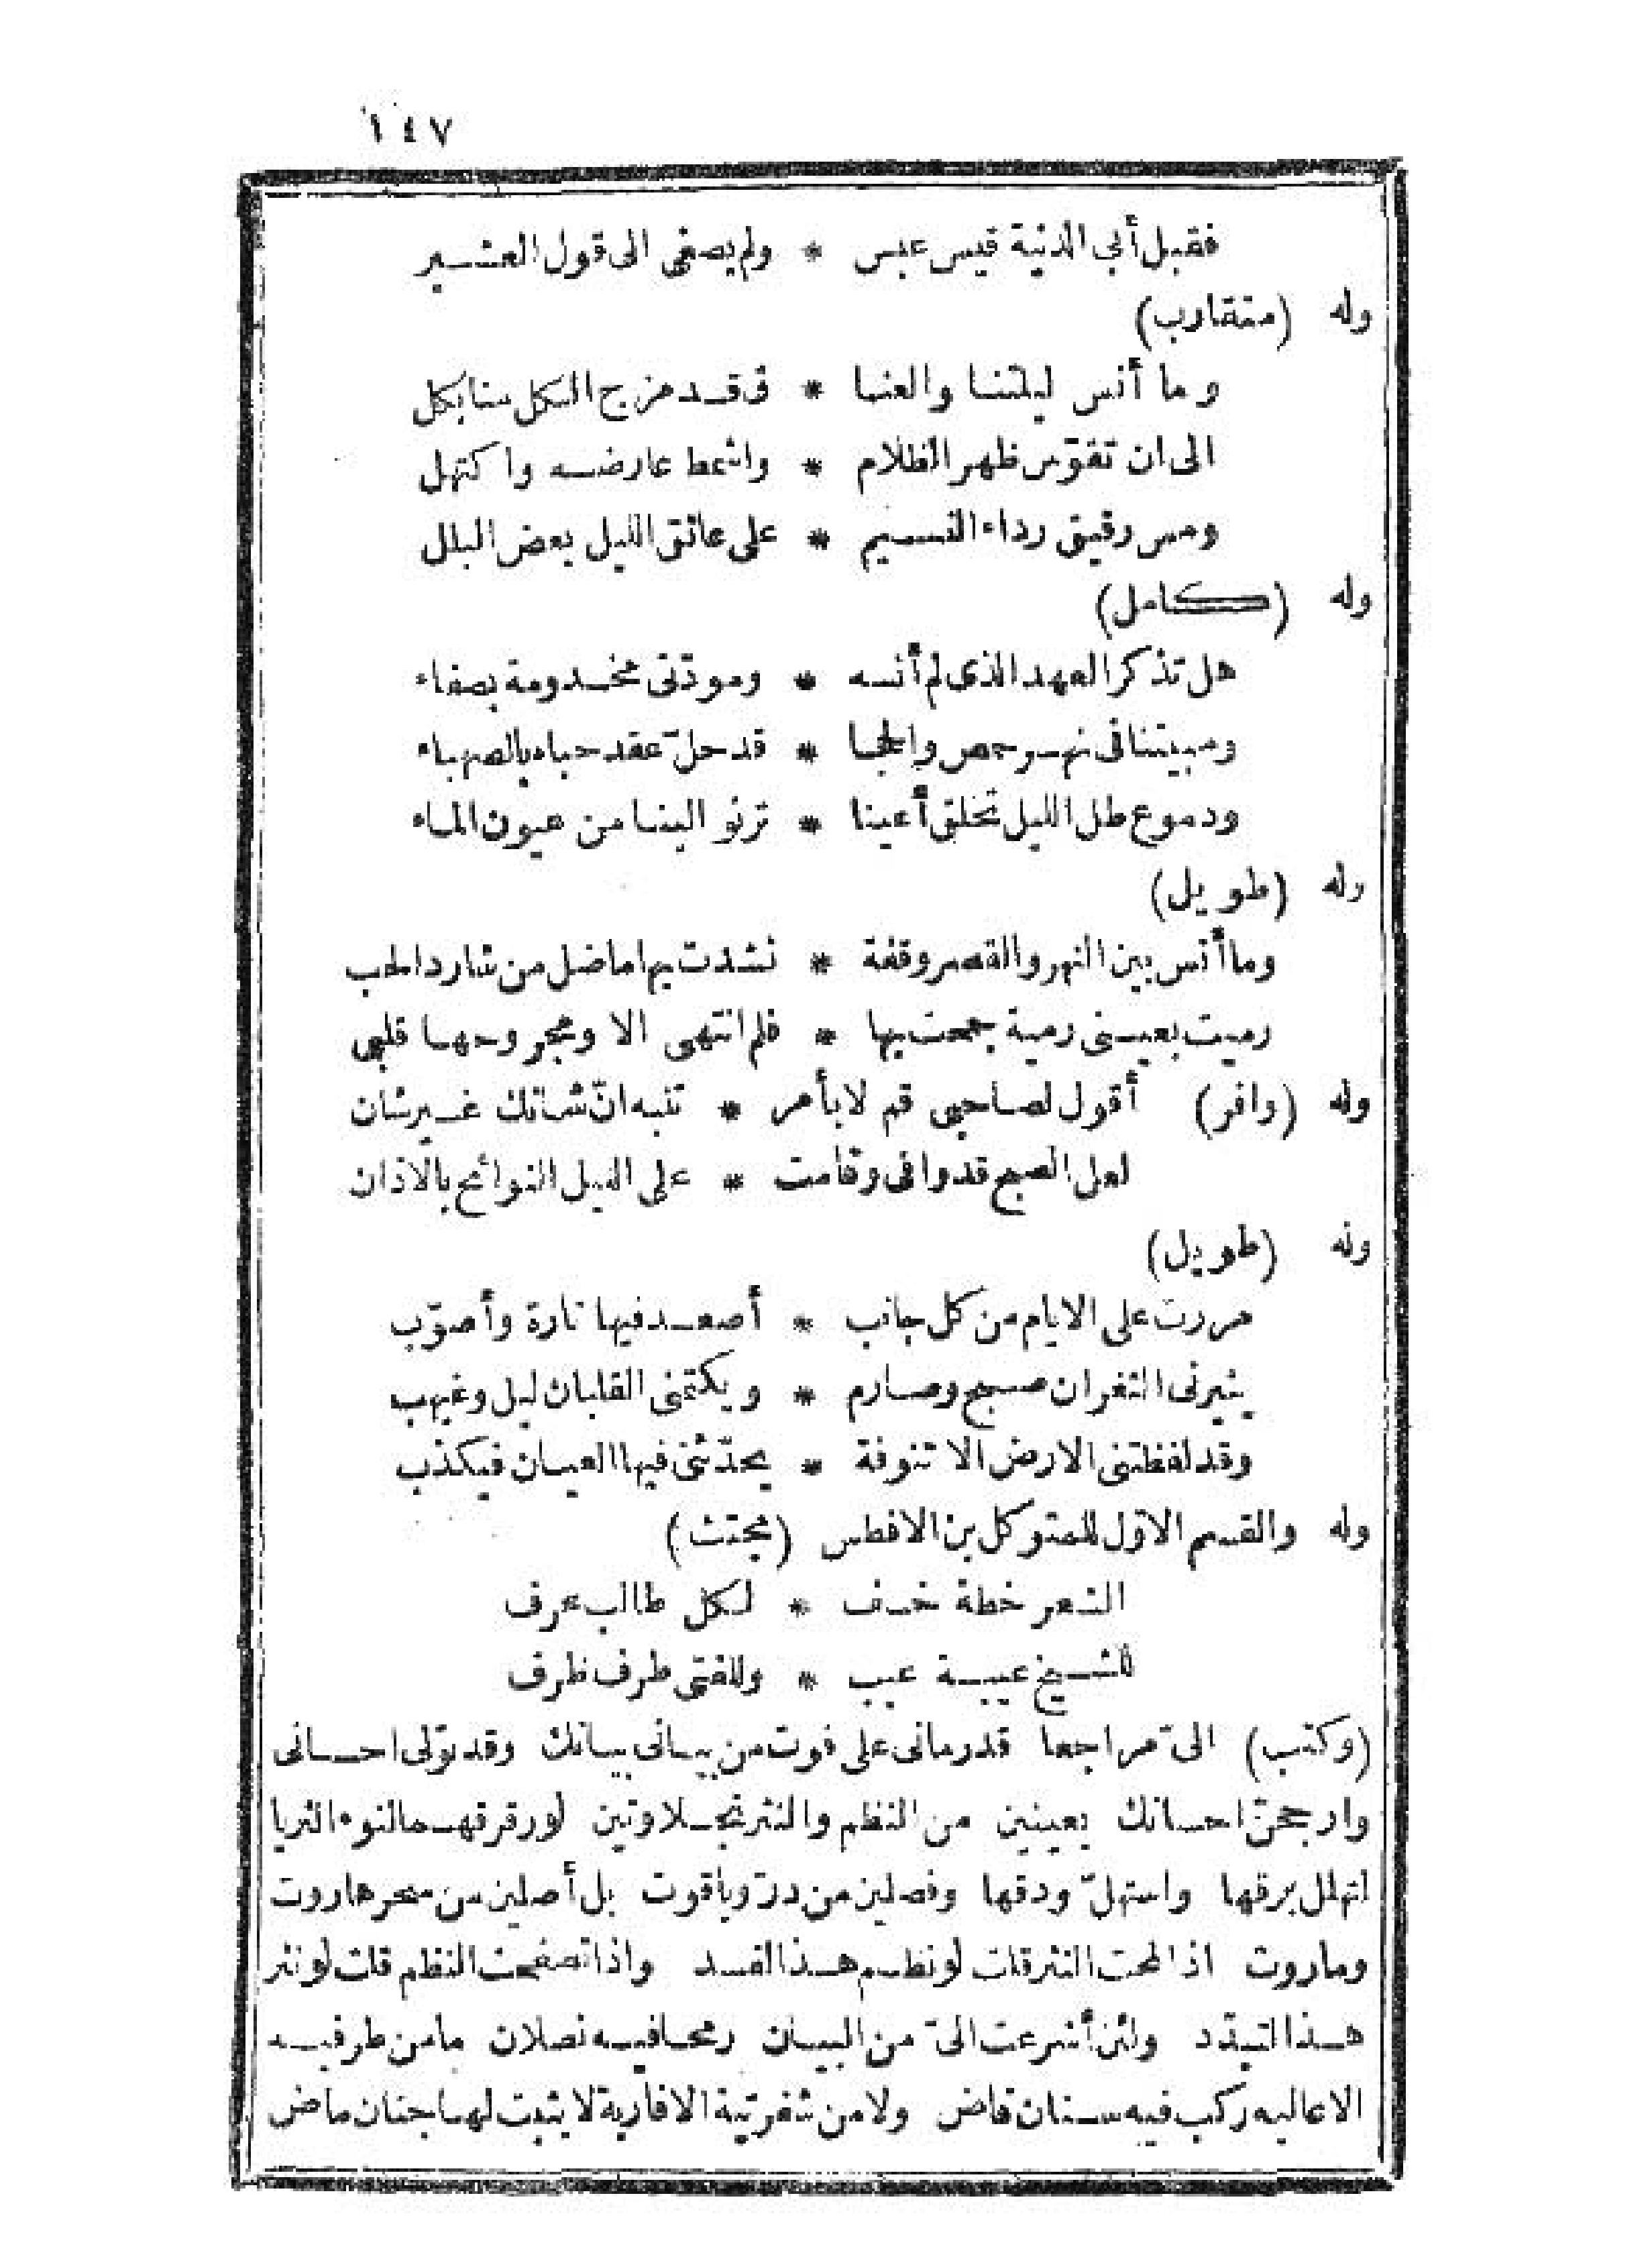 ١٤٧
فقبل أبى الدنية قيس عبس * ولم يصغى الى قول العشير
وله (متقارب)
وما أنس ليلتنا والعنا * ق قد مزج الكل منا بكل
الى ان تقوّس ظهر الظلام * واشمط عارضه واكتهل
ومس رقيق رداء النسيم * على عاتق الليل بعض البلل
وله (كامل)
هل تذكر العهد الذى لم أنسه * ومودّتى مخدومة بصفاء
ومبيتنا فى نهر حمص والحجا * قد حلّ عقد حباه بالصهباء
ودموع طل الليل تخلق أعينا * ترنو الينا من عيون الماء
وله (طويل)
وما أنس بين النهر والقصر وقفة * نشدت بها ما ضل من شارد الحب
رميت بعينى رمية جمحت بها * فلم انتهى الا ومجروحها قلبى
وله (وافر) أقول لصاحبى قم لا بأمر * تنبه انّ شانك غير شان
لعل الصبح قد وافى وقامت * على الليل النوائح بالاذان
وله (طويل)
مررت على الايام من كل جانب * أصعد فيها تارة وأصوّب
ينيرنى الثغران صبح وصارم * ويكتمنى القلبان ليل وغيهب
وقد لفظتنى الارض الا تنوفة * يحدّثنى فيها العيان فيكذب
وله والقسم الاوّل للمتوكل بن الافطس (مجتث)
الشعر خطة خسف * لكل طالب عرف
للشيخ عيبة عيب * وللفتى ظرف ظرف
(وكتب) الىّ مراجعا قد رمانى على فوت من بيانى بيانك وقد تولى احسانى
وارجحنّ احسانك بعينين من النظم والنثر نجلاوتين لو رقرقهما لنوء الثريا
انهلل برقها واستهلّ ودقها وفصلين من درّ وياقوت بل أصلين من سحر هاروت
وماروت اذا لمحت النثر قلت لو نظم هذا الفسد واذا تصفحت النظم قلت لو نثر
هذا التبدّد ولئن أشرعت الىّ من البيان رمحا فيه نصلان ما من طرفيه
الا عاليه ركب فيه سنان قاض ولا من شفرتيه الا فارية لا يثبت لها جنان ماض